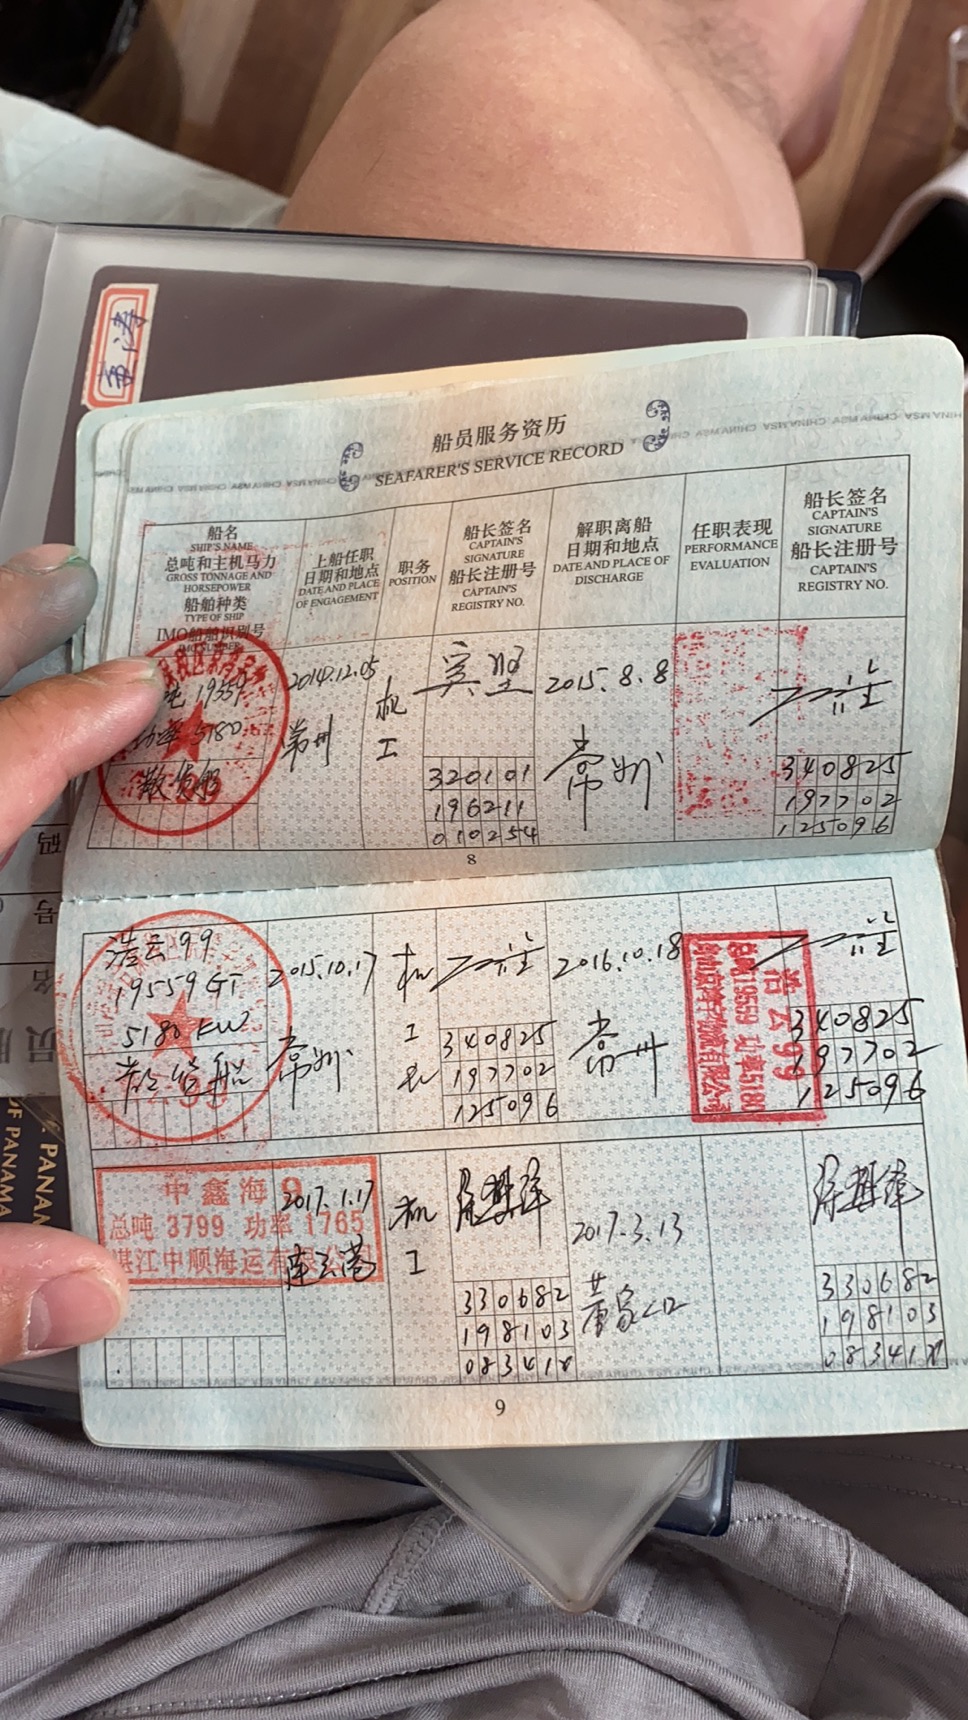 船员服务资历
SEAFARER'S SERVICE RECORD
船名
SHIP'S NAME
总吨和主机马力
GROSS TONNAGE AND
HORSEPOWER
船舶种类
TYPE OF SHIP
IMO船舶识别号
IMO NUMBER
上船任职
日期和地点
DATE AND PLACE
OF ENGAGEMENT
职务
POSITION
船长签名
CAPTAIN'S
SIGNATURE
船长注册号
CAPTAIN'S
REGISTRY NO.
解职离船
日期和地点
DATE AND PLACE OF
DISCHARGE
任职表现
PERFORMANCE
EVALUATION
船长签名
CAPTAIN'S
SIGNATURE
船长注册号
CAPTAIN'S
REGISTRY NO.
吨 19559
功率 5180
散货船
2014.12.05
常州
机
工
320101
196211
010254
2015.8.8
常州
340825
197702
125096
8
浩云99
19559 GT
5180 KW
散货船
2015.10.17
常州
机
工
340825
197702
125096
2016.10.18
常州
浩云99
总吨19559 功率5180
340825
197702
125096
中鑫海9
总吨 3799 功率 1765
湛江中顺海运有限公司
2017.1.17
连云港
机
工
330682
198103
08341X
2017.3.13
330682
198103
08341X
9
PANAMA
OF PANAMA